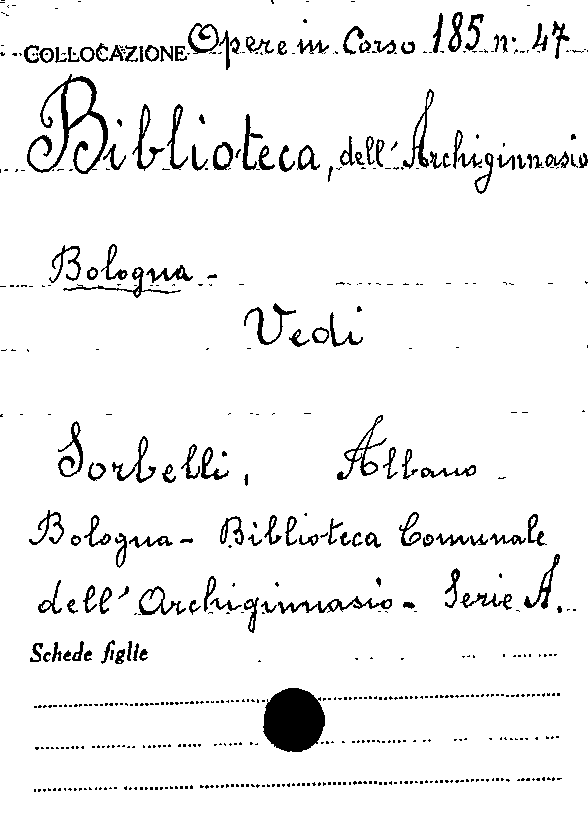 COLLOCAZIONE Opere in Corso 185 n. 47
Biblioteca, dell'Archiginnasio
Bologna -
Vedi
Sorbelli, Albano -
Bologna - Biblioteca Comunale
dell'Archiginnasio - Serie A.
Schede figlie